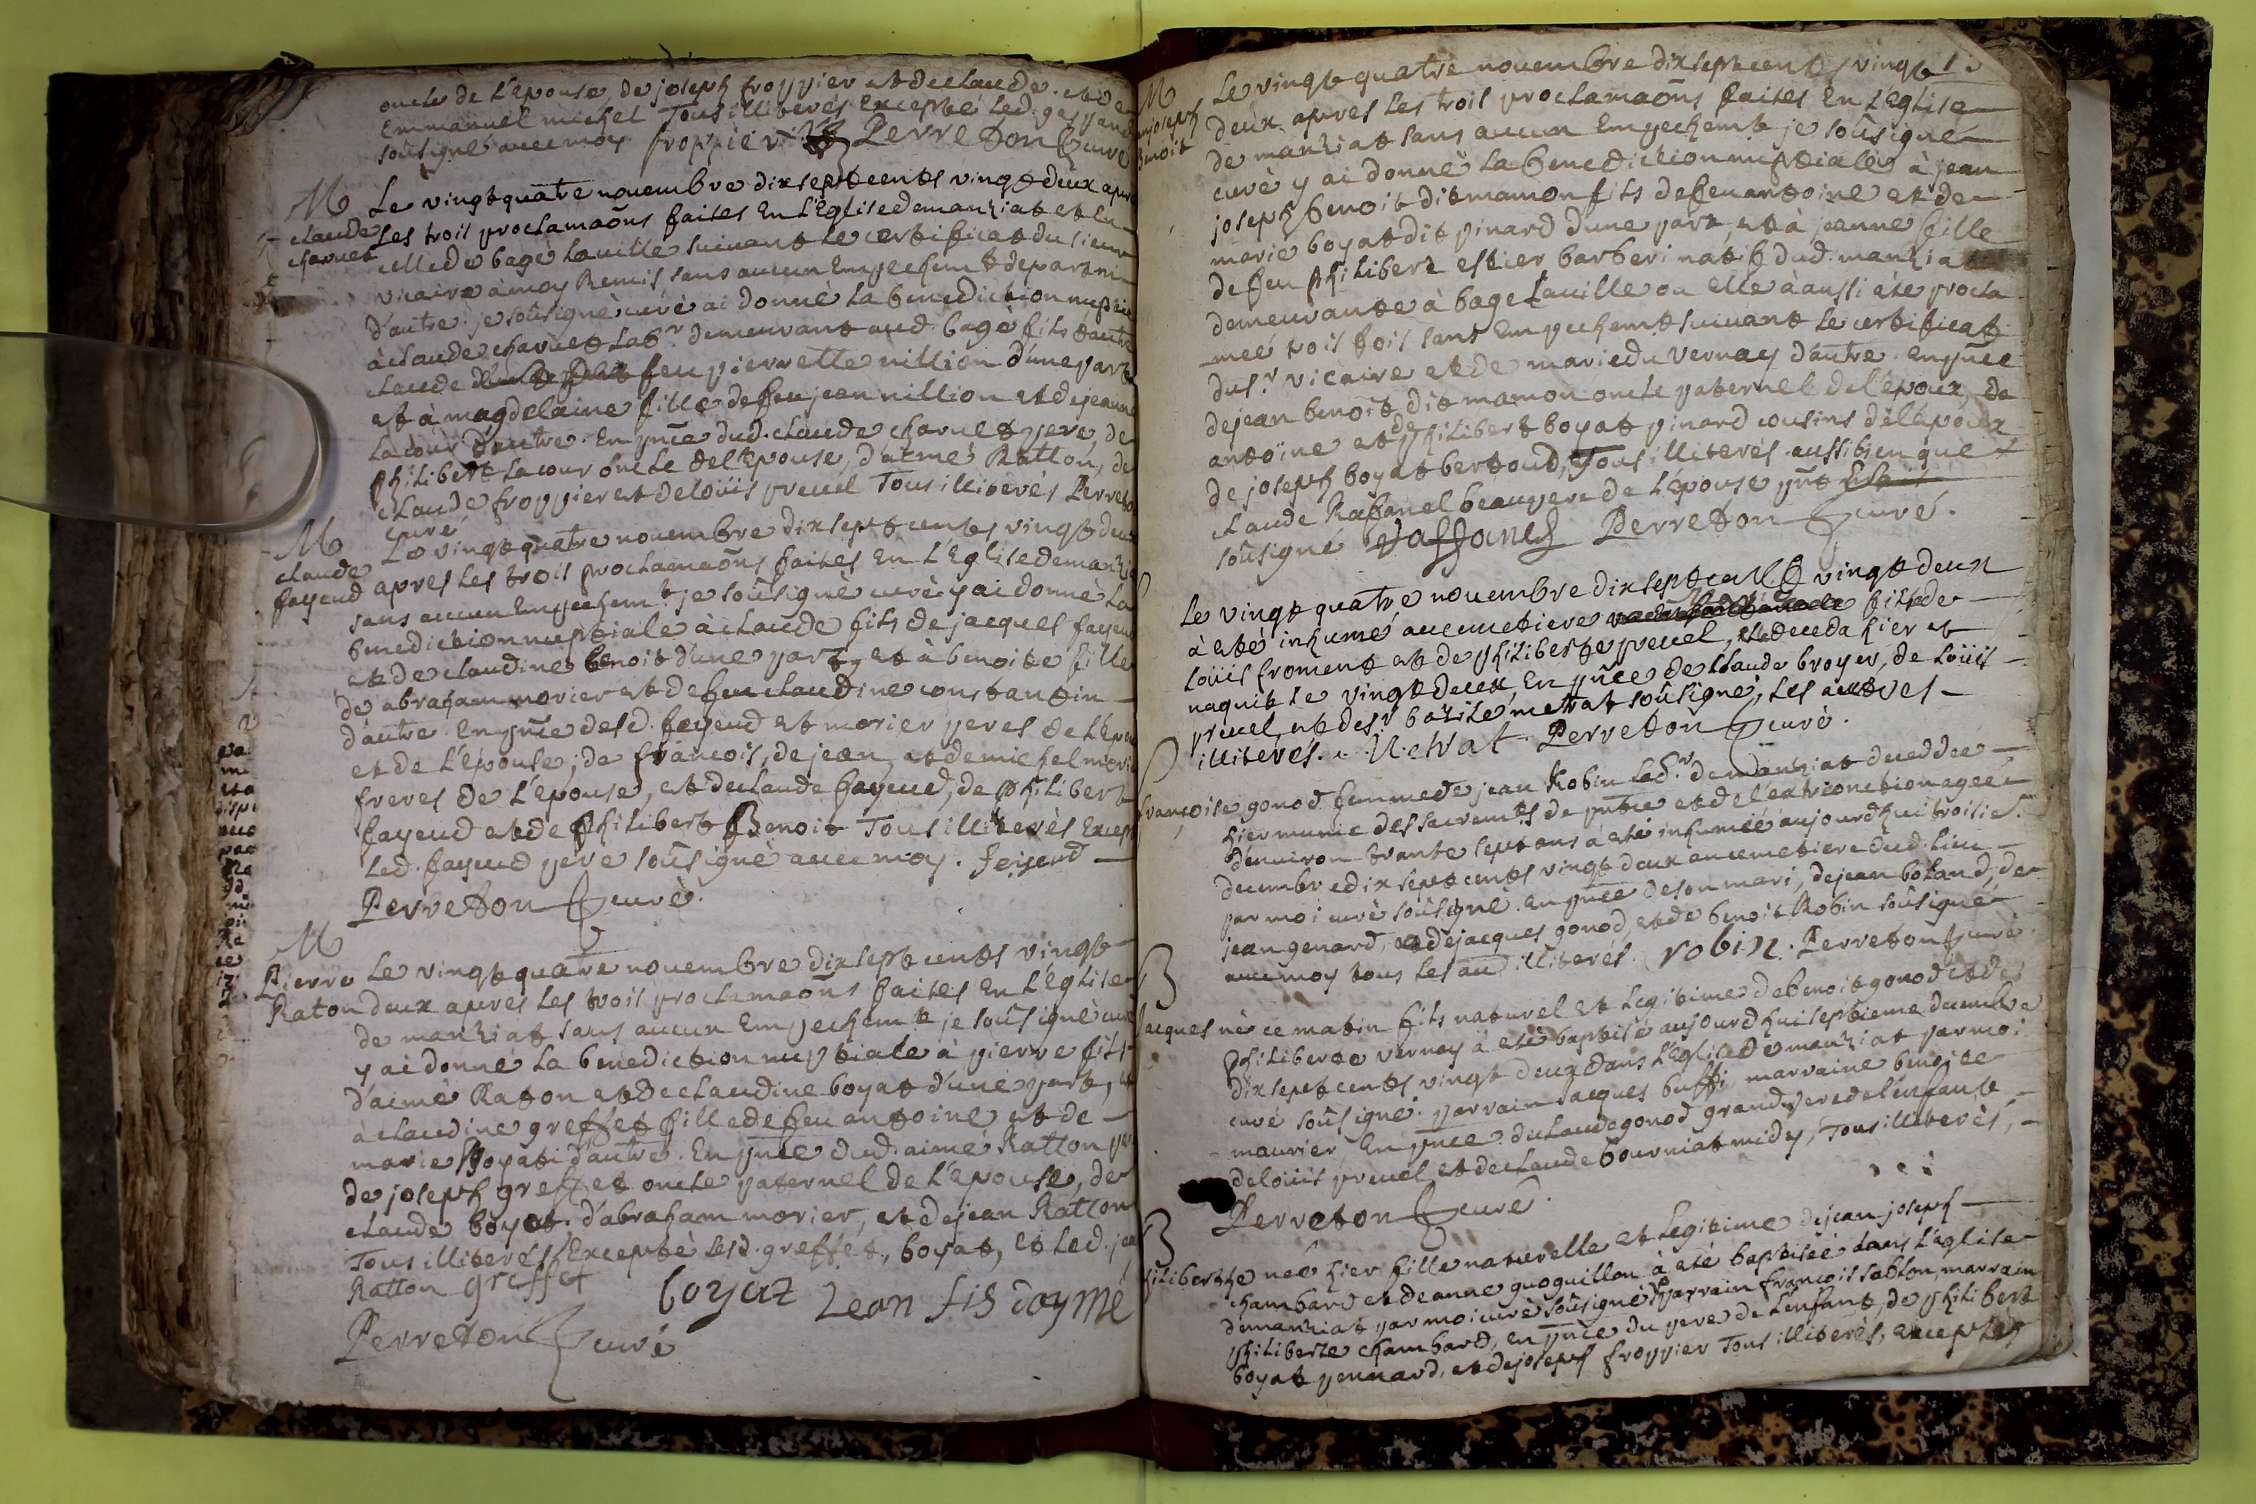 oncle de l'epouse, de joseph froppier et de claude et de
Emmanuel michel Tous illiterés Excepté led.
soûsigné avec moy froppier Perreton curé
M
claude
charvet
Le vingt quatre novembre dix sept cents vingt deux apres
Les trois proclamaõns faites En l'Eglise de manziat et En
celle de bagé la ville suivant le certificat du sieur
vicaire à moy Remis sans aucun Empechem.t de part ni
d'autre. je soûsigné curé ai donné la benediction nuptiale
à claude charvet lab.r demeurant aud. bagé fils d'autre
claude feu pierrette nillion d'une part
et à magdelaine fille de feu jean nillion et de jeanne
lacour d'autre. En pñce dud. claude charvet pere, de
philibert lacour oncle de l'Epouse, d'aimé Ratton, de
claude froppier et de loüis preuel Tous illiterés Perreton
curé
M
claude
fayend
Le vingt quatre novembre dix sept cents vingt deux
apres les trois proclamaõns faites En L'Eglise de manziat
sans aucun Empechem.t je soûsigné curé y ai donné la
benediction nuptiale à claude fils de jacques fayend
et de claudine benoit d'une part, et à benoite fille
de abraham morier et de feu claudine constantin
d'autre. En pñce desd. fayend et morier peres de l'Epoux
et de l'épouse; de francois, de jean, et de michel morier
freres de l'épouse, et de claude fayend, de philibert
fayend et de philibert Benoit Tous illiterés Excepté
led. fayend pere soûsigné avec moy. feyend
Perreton curé.
M
Pierre
Raton
Le vingt quatre novembre dix sept cents vingt
deux apres les trois proclamaõns faites En l'Eglise
de manziat sans aucun Empechem.t je soûsigné curé
y ai donné la benediction nuptiale à pierre fils
d'aimé Raton et de claudine boyat d'une part, et
à claudine greffet fille de feu antoine et de
marie Boyat d'autre. En pñce dud. aimé Ratton pere
de joseph greffet oncle paternel de l'épouse, de
claude boyat. d'abraham morier, et de jean Ratton
Tous illiterés Excepté lesd. greffet, boyat, et led. jean
Ratton greffet boyat Jean fis daymé
Perreton curé
M
joseph
Benoit
Le vingt quatre novembre dix sept cents vingt
deux apres les trois proclamaõns faites En l'Eglise
de manziat sans aucun Empechem.t je soûsigné
curé y ai donné la benediction nuptiale à jean
joseph benoit dit mamon fils de feu antoine et de
marie boyat dit pinard d'une part, et à jeanne fille
de feu philibert estier barberi natif dud. manziat
demeurante à bagé la ville ou elle à aussi été procla
mée trois fois sans Empechem.t suivant le certificat
du s.r vicaire et de marie du vernay d'autre. En pñce
de jean benoît dit mamon oncle paternel de l'époux, de
antoine et de philibert boyat pinard cousins de l'epoux
de joseph boyat bertoud, Tous illiterés. aussi bien que
claude Raffanel beaupere de l'epouse pñt
soûsigné Raffanel Perreton curé.
Le vingt quatre novembre dix sept cents vingt deux
à eté inhumé au cimetiere fille de
loüis froment et de philiberte preuel, deceda hier et
naquit le vingt deux, En pñce de claude broyer, de loüis
preuel, et de s.r bazile metrat soûsigné, les autres
illiterés. Metrat Perreton curé.
francoise gonod femme de jean Robin lab.r de manziat decedée
hier munie des sacrem.ts de pñtce et de l'extremonction agée
d'environ trante sept ans à eté inhumée aujourd'hui troisie.
decembre dix sept cents vingt deux au cimetiere dud. lieu
par moi curé soûsigné. En pñce de son mari, de jean boland, de
jean genard, de jacques gonod, et de benoit Robin soûsigné
avec moy tous les au. illiterés. robin. Perreton curé.
B
jacques né ce matin fils naturel et legitime de benoit gonod et de
philiberte vernay à eté baptisé aujourd'hui septieme decembre
dix sept cents vingt deux dans l'Eglise de manziat par moi
curé soûsigné. parrain jacques buffi marraine benoite
maurier En pñce de claude gonod grand pere de l'enfant
de loüis preuel et de claude bourniat midy, Tous illiterés,
Perreton curé.
B
philiberthe née hier fille naturelle et legitime de jean joseph
chambard et de anne guoguillon à eté baptisée dans l'Eglise
de manziat par moi curé soûsigné parrain francois sablon, marraine
philiberte chambard, en pñce du pere de l'enfant, de philibert
boyat pennard, et de joseph froppier Tous illiterés, excepté